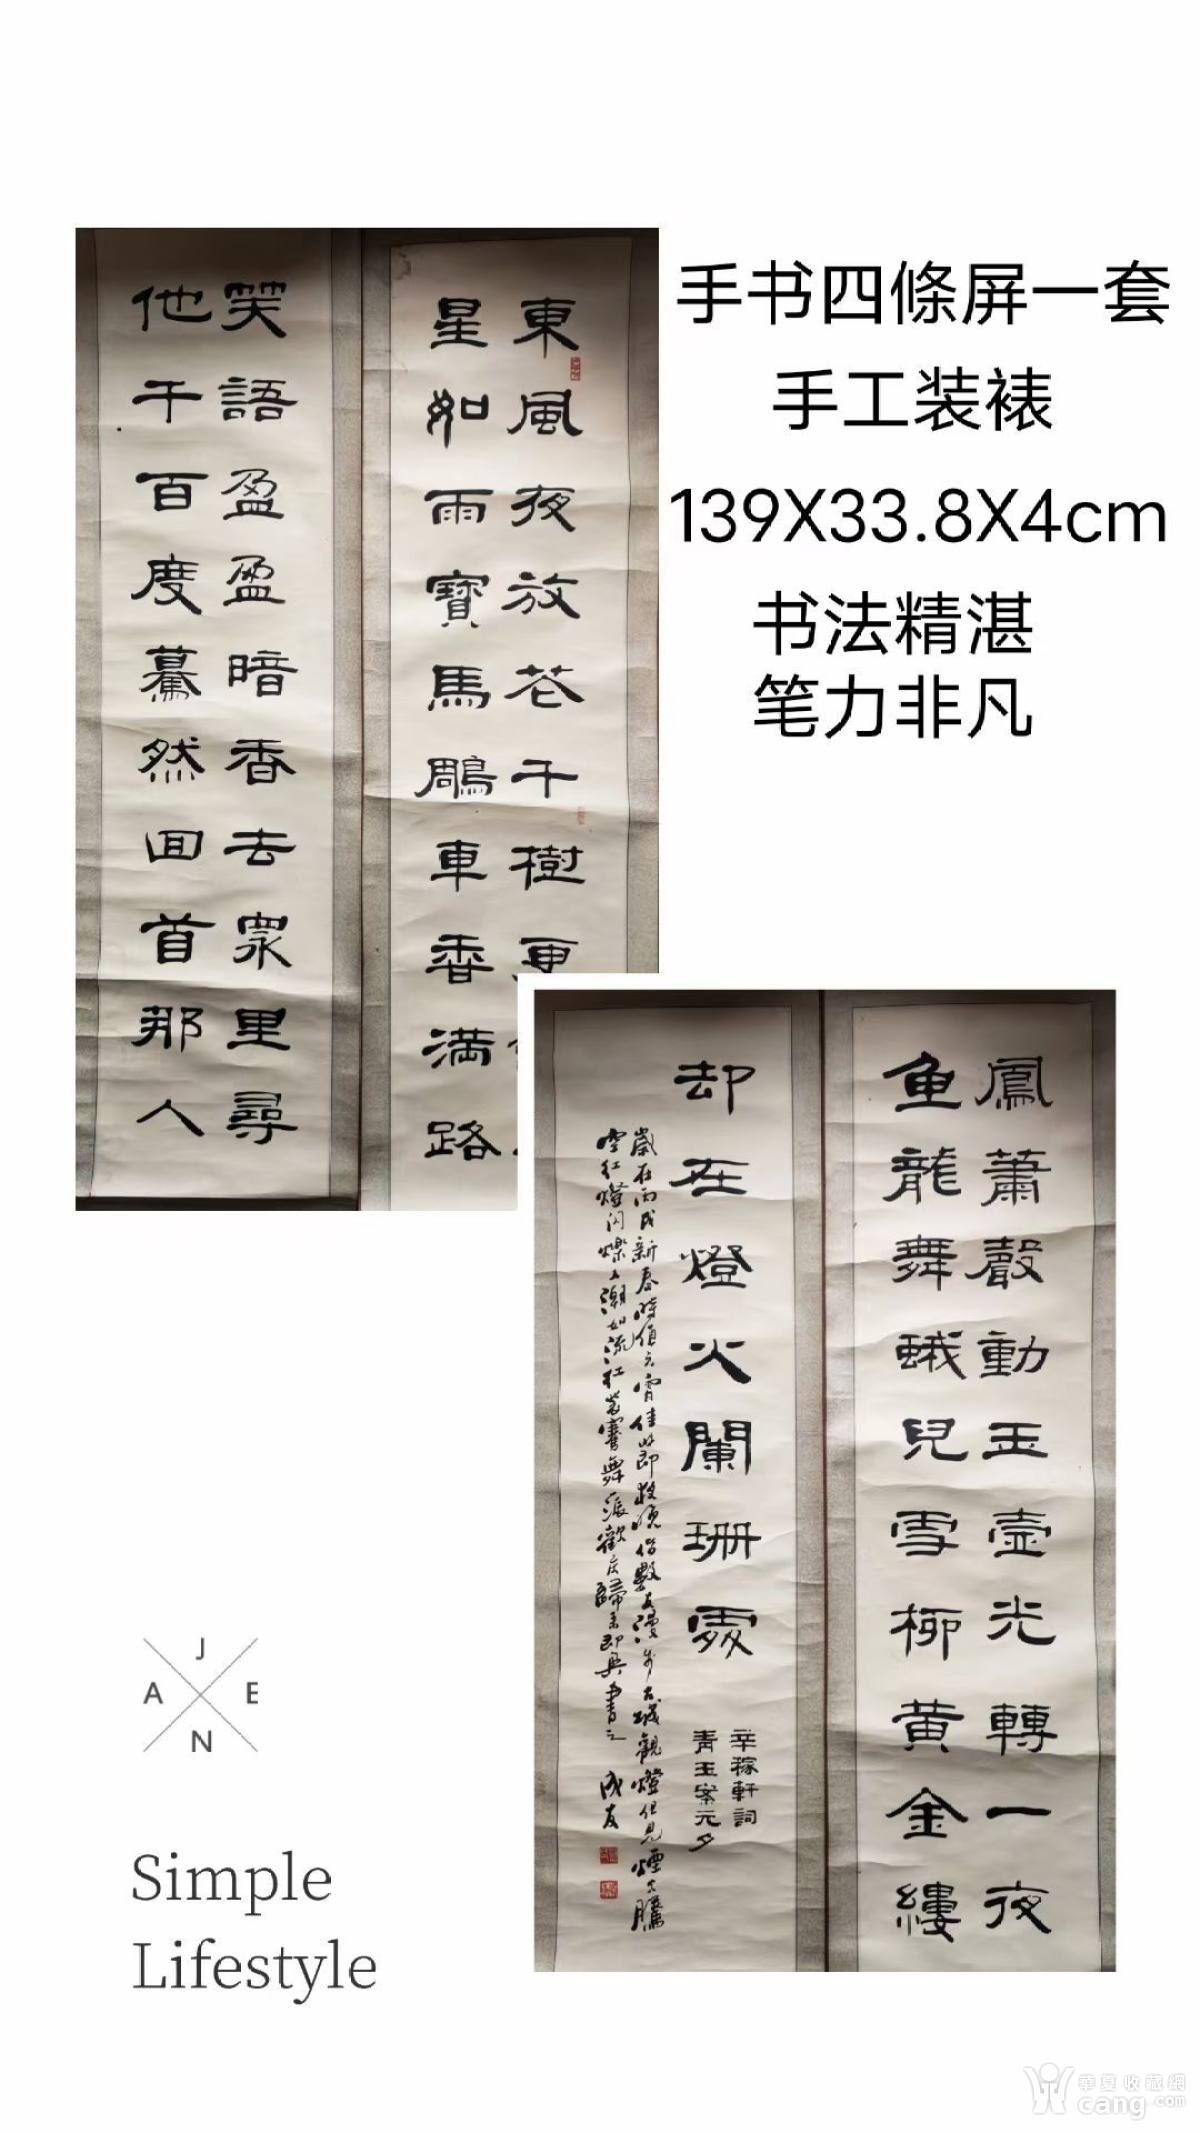 手书四條屏一套
手工装裱
139X33.8X4cm
书法精湛
笔力非凡
東風夜放花千樹更
星如雨寶馬雕車香滿路
笑語盈盈暗香去眾里尋
他千百度驀然回首那人
鳳簫聲動玉壺光轉一夜
魚龍舞蛾兒雪柳黃金縷
却在燈火闌珊處
辛稼軒詞
青玉案元夕
歲在丙戌新春時值元宵佳節傍晚偕數友漫步古城觀燈但見煙火騰
空紅燈閃爍人潮如流
歸來即興書之
成友
J
A E
N
Simple
Lifestyle
華夏收藏網
cang.com